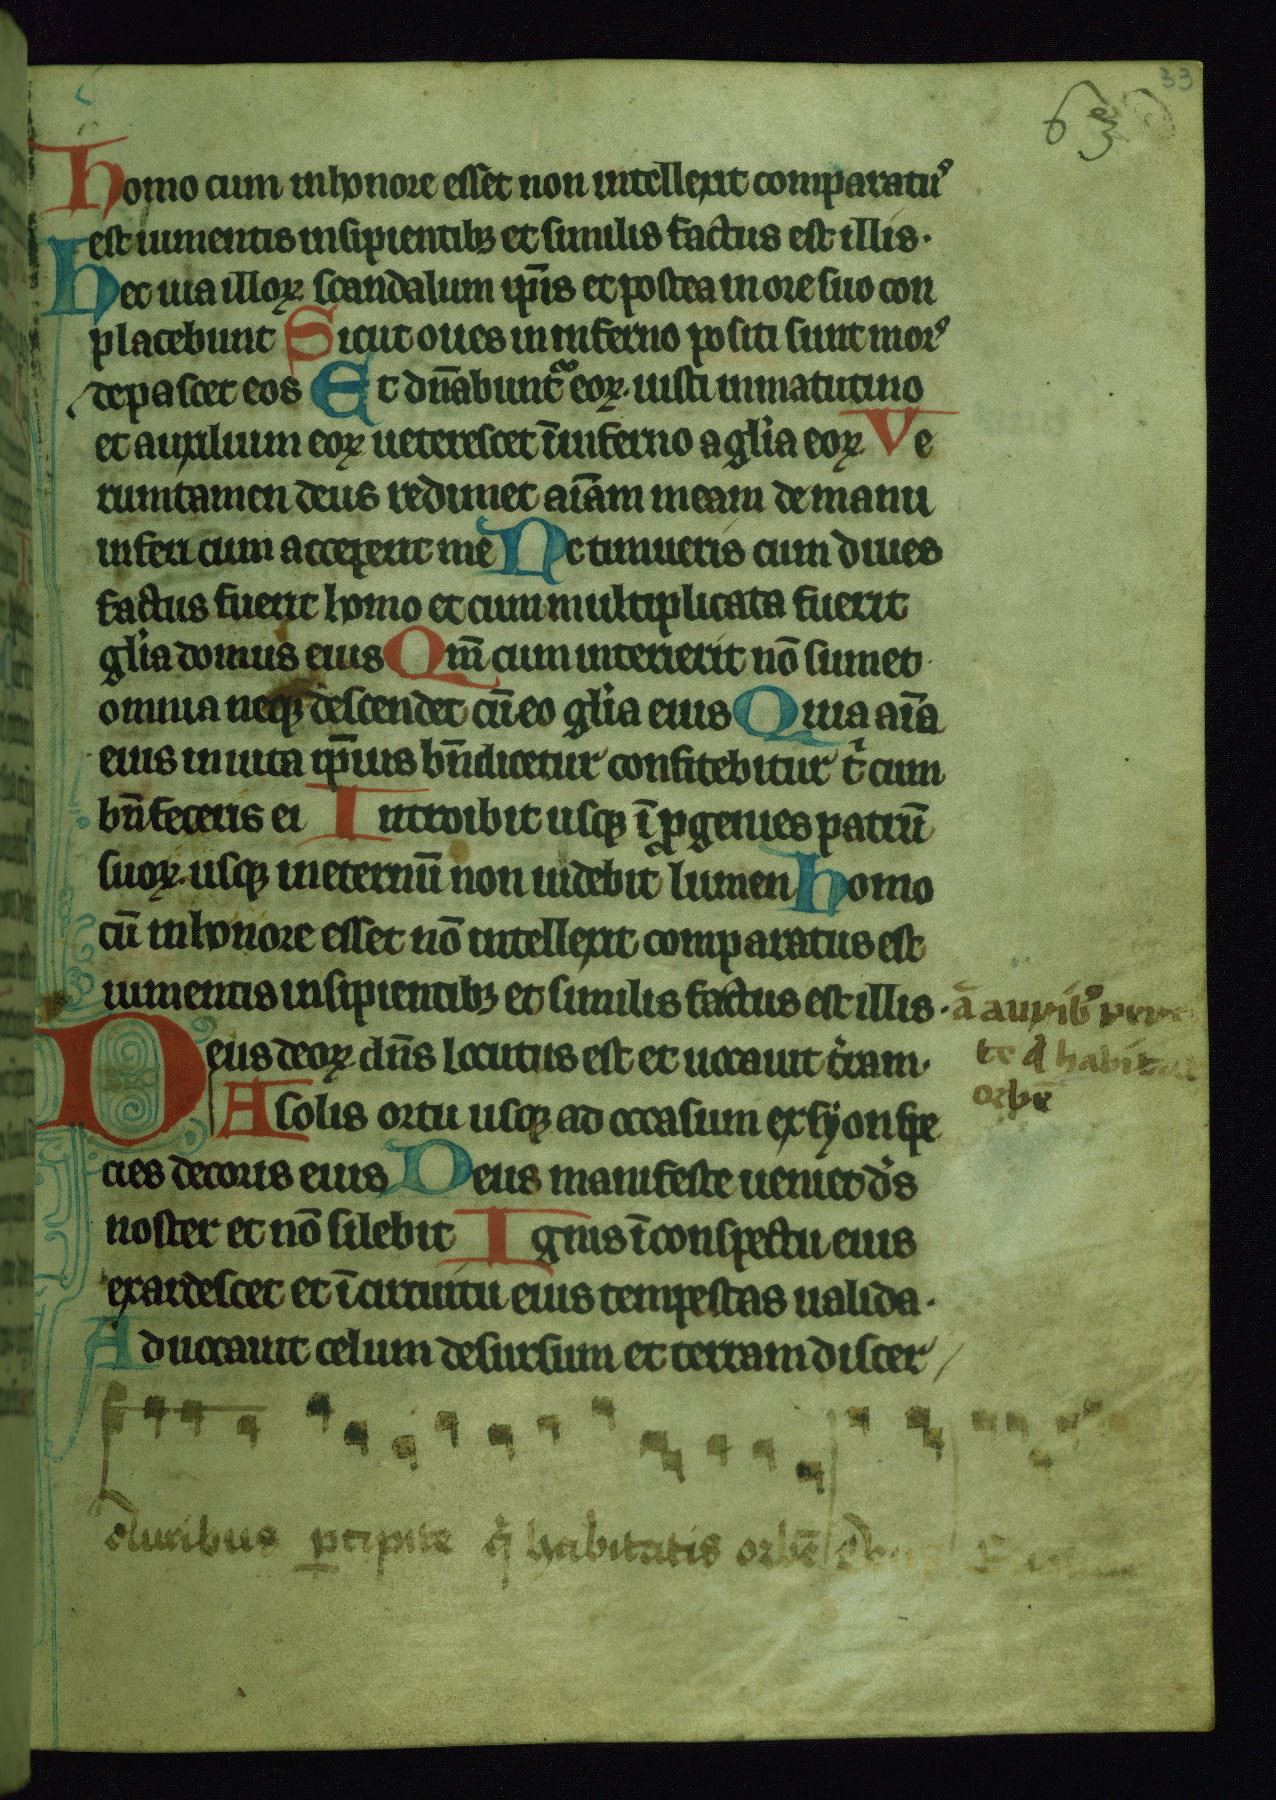 33
63
Homo cum in honore esset non intellexit comparatuꝰ
est iumentis insipientibꝫ et similis factus est illis·
Hec uia illoꝝ scandalum ip̄is et postea in ore suo con
placebunt Sicut oues in inferno positi sunt morꝰ
depascet eos Et dn̄abunt᷑ eoꝝ· iusti in matutino
et auxilium eoꝝ ueterescet ī inferno a gl̓ia eoꝝ Ve
rumtamen deus redimet aīam meam de manu
inferi cum acceperit me Ne timueris cum diues
factus fuerit homo et cum multiplicata fuerit
gl̓ia domus eius Qm̄ cum interierit nō sumet·
omnia neqꝫ descendet cū eo gl̓ia eius Quia aīa
eius in uita ip̄ius bn̄dicetur confitebitur t̓ cum
bn̄feceris ei Introibit usqꝫ ī ꝓgenies patrū
suoꝝ· usqꝫ in eternū non uidebit lumen Homo
cū in honore esset nō intellexit comparatus est
iumentis insipientibꝫ et similis factus est illis·
Deus deoꝝ dn̄s locutus est et uocauit t̓ram·
A solis ortu usqꝫ ad occasum ex syon spe
cies decoris eius Deus manifeste ueniet d̓s
noster et nō silebit Ignis ī conspectu eius
exardescet et ī circuitu eius tempestas ualida·
Aduocauit celum desursum et terram discer
ā auribꝰ
te q̓ habitat
orbē
Auribus ꝑcipite q̓ habitatis orbē